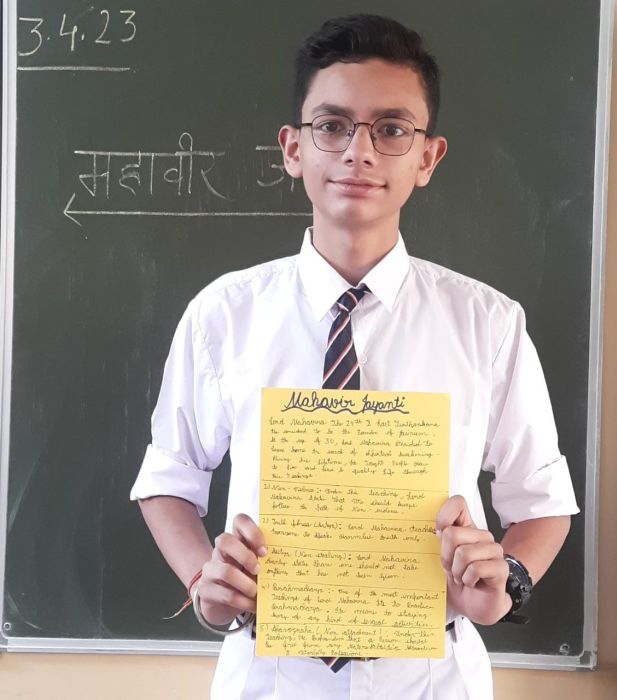 3.4.23
महावीर ज
Mahavir Jayanti
Lord Mahavira the 24th & last Tirthankara
is considered to be the founder of Jainism.
At the age of 30, Lord Mahavira decided to
leave home in search of spiritual awakening.
During his lifetime, he taught People how
to live and lead a quality life through
his
1) Non-violence: Under this teaching, Lord
Mahavira states that we should always
follow the path of Non-violence.
2) Truth fulness (Satya): Lord Mahavira teaches
everyone to speak harmless truth only.
Asteya (Non stealing): Lord Mahavira
states that one should not take
anything that has not been given.
4) Brahmacharya: One of the most important
Teachings of Lord Mahavira is to Practice
Brahmacharya. It means to staying
away of any kind of sexual activities.
5) Aparigraha (Non attachment): Under this
Teaching, he that a Person should
be free from any Materialistic
&